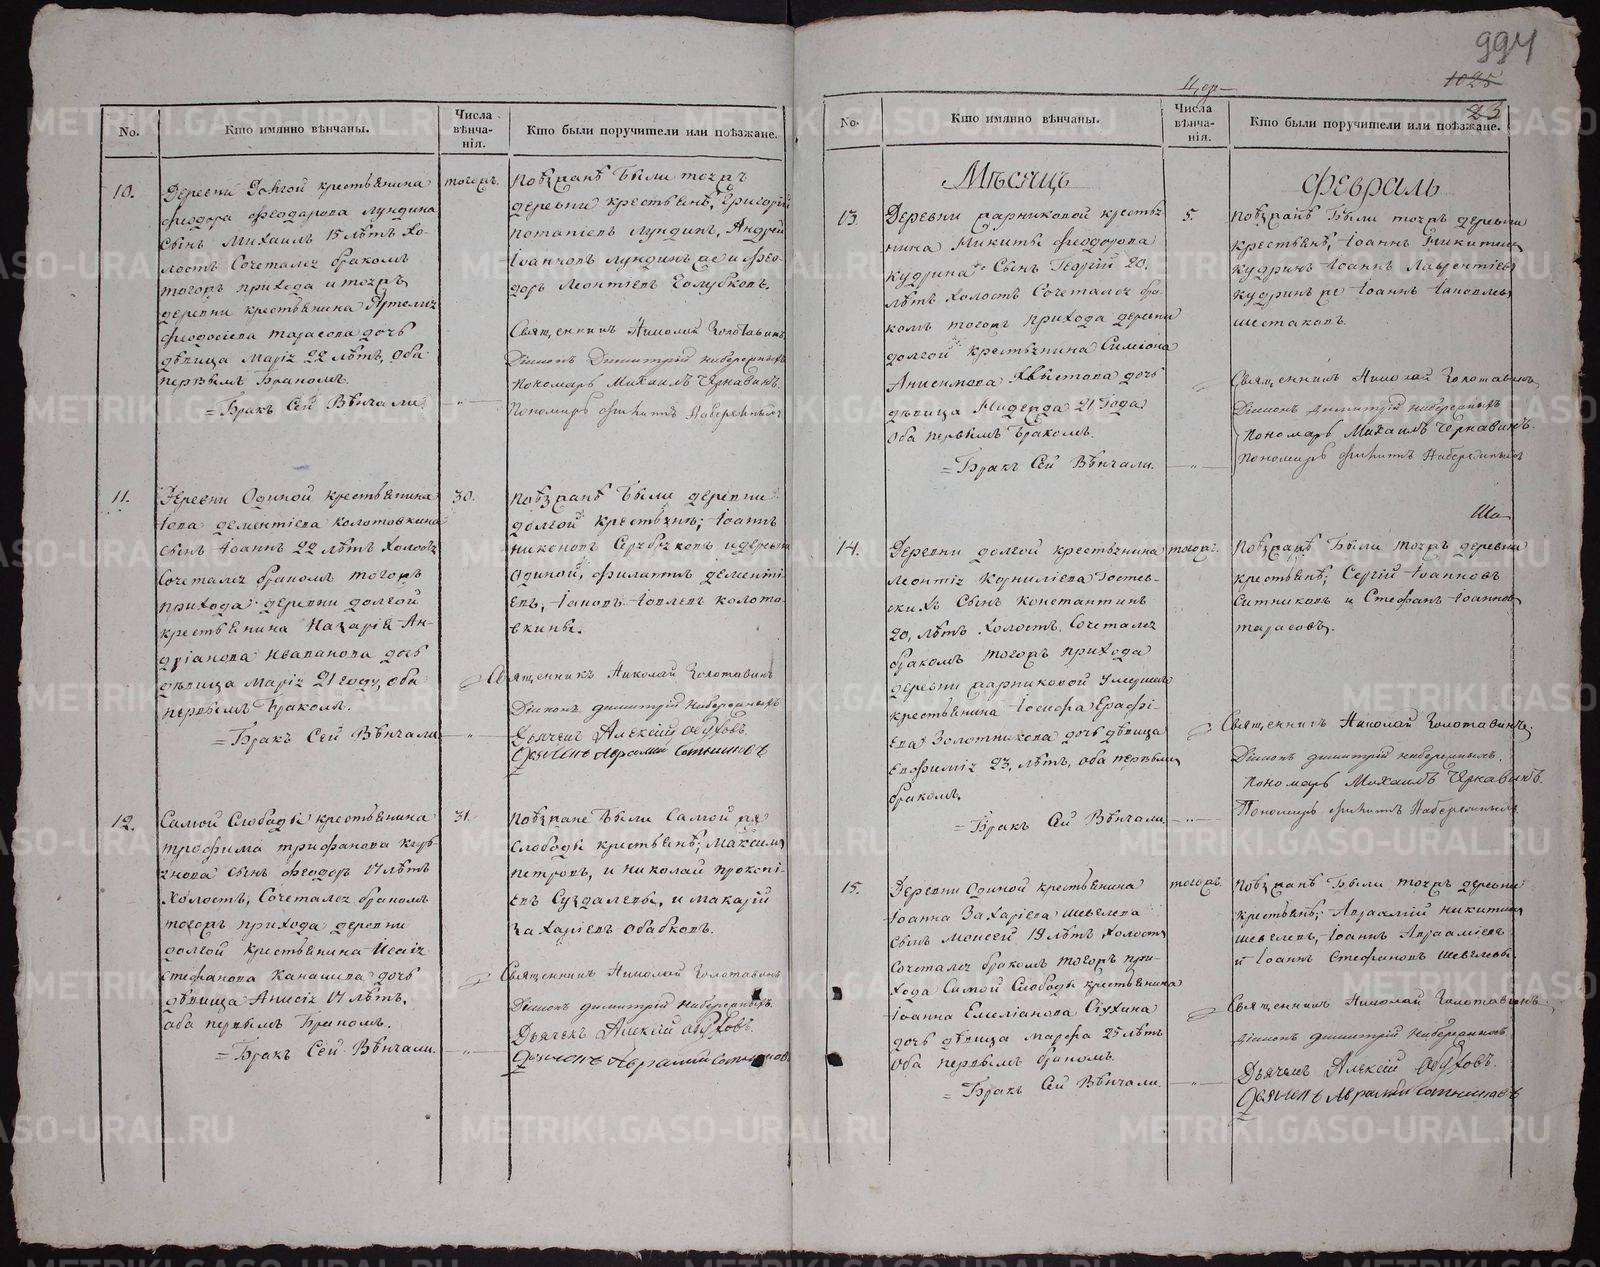 No.
Кто имянно вѣнчаны.
Числа вѣнча-нія.
Кто были поручители или поѣзжане.
10.
Деревни Долгой крестьянина
Феодора Феодорова Лундина
сынъ Михаилъ 15 лѣтъ хо-
лостъ сочетался бракомъ
тогожъ прихода и тояжъ
деревни крестьянина Артемія
Феодосіева Тарасова дочь
дѣвица Марія 22 лѣтъ, оба
первымъ бракомъ.
= Бракъ сей вѣнчали.
тогожъ.
Поѣзжанѣ были тояжъ
деревни крестьянѣ, Григорій
Потапіевъ Лундинъ, Андрей
Іоанновъ Лундинъ же и Фео-
доръ Леонтіевъ Голубковъ.
Священникъ Николай Золотавинъ
Діаконъ Димитрій Набережныхъ
Пономарь Михаилъ Чернавинъ.
Пономарь Филиппъ Набережныхъ
11.
Деревни Одиной крестьянина
Іова Дементіева Колотовкина
сынъ Іоаннъ 22 лѣтъ холостъ
сочетался бракомъ тогожъ
прихода деревни Долгой
крестьянина Назарія Ан-
дріанова Кваланова дочь
дѣвица Марія 21 году, оба
первымъ бракомъ.
= Бракъ сей вѣнчали
30.
Поѣзжанѣ были деревни
Долгой крестьянѣ; Іоаннъ
Никоновъ Серебряковъ и деревни
Одиной, Филиппъ Дементі-
евъ, Іаковъ Іовлевъ Колото-
вкины.
Священникъ Николай Золотавинъ
Діаконъ Димитрій Набережныхъ
Дьячекъ Алексій Обуховъ.
Дьячекъ Аврамій Сотниковъ
12.
Самой Слободы крестьянина
Трофима Трифанова
сынъ Феодоръ 17 лѣтъ
холостъ, сочетался бракомъ
тогожъ прихода деревни
Долгой крестьянина Исаія
Стефанова Канашева дочь
дѣвица Анисія 17 лѣтъ,
оба первымъ бракомъ.
= Бракъ сей вѣнчали.
31.
Поѣзжане были самой же
Слободы крестьянѣ; Максимъ
Петровъ, и Николай Прокопі-
евъ Суздалевы, и Макарій
Захаріевъ Обабковъ.
Священникъ Николай Золотавинъ
Діаконъ Димитрій Набережныхъ.
Дьячекъ Алексій Обуховъ.
Дьячекъ Аврамій Сотниковъ
994
1025
23
No.
Кто имянно вѣнчаны.
Числа вѣнча-нія.
Кто были поручители или поѣзжане.
Мѣсяцъ
Февраль
13.
Деревни Парниковой крестья-
нина Никиты Феодорова
Кудрина сынъ Георгій 20.
лѣтъ холостъ сочетался бра-
комъ тогожъ прихода деревни
Долгой крестьянина Симіона
Анисимова дочь
дѣвица Надежда 21 года.
оба первымъ бракомъ.
= Бракъ сей вѣнчали.
5.
Поѣзжанѣ были тояжъ деревни
крестьянѣ, Іоаннъ Никитинъ
Кудринъ Іоаннъ Лаврентіевъ
Кудринъ же Іоаннъ Іаковлевъ
Шестаковъ.
Священникъ Николай Золотавинъ
Діаконъ Димитрій Набережныхъ
Пономарь Михаилъ Чернавинъ.
Пономарь Филиппъ Набережныхъ
14.
Деревни Долгой крестьянина
Леонтія Корниліева Гостев-
скихъ сынъ Константинъ
20, лѣтъ холостъ, сочетался
бракомъ тогожъ прихода
деревни Парниковой умершаго
крестьянина Іосифа Ерафі-
ева Золотникова дочь дѣвица
Евфимія 23, лѣтъ, оба первымъ
бракомъ.
= Бракъ сей вѣнчали.
тогожъ.
Поѣзжанѣ были тояжъ деревни
крестьянѣ; Сергій Іоанновъ
Ситниковъ и Стефанъ Іоанновъ
Тарасовъ.
Священникъ Николай Золотавинъ
Діаконъ Димитрій Набережныхъ.
Пономарь Михаилъ Чернавинъ.
Пономарь Филиппъ Набережныхъ
15.
Деревни Одиной крестьянина
Іоанна Захаріева Шевелева
сынъ Моисей 19 лѣтъ холостъ
сочетался бракомъ тогожъ при-
хода самой Слободы крестьянина
Іоанна Емеліанова Сѣдухина
дочь дѣвица Марфа 25 лѣтъ
оба первымъ бракомъ.
= Бракъ сей вѣнчали.
тогожъ.
Поѣзжанѣ были тояжъ деревни
крестьянѣ; Авраамій Никитинъ
Шевелевъ, Іоаннъ Авраамієвъ
и Іоаннъ Стефановъ Шевелевы.
Священникъ Николай Золотавинъ
Діаконъ Димитрій Набережныхъ
Дьячекъ Алексій Обуховъ.
Дьячекъ Аврамій Сотниковъ
METRIKI.GASO-URAL.RU